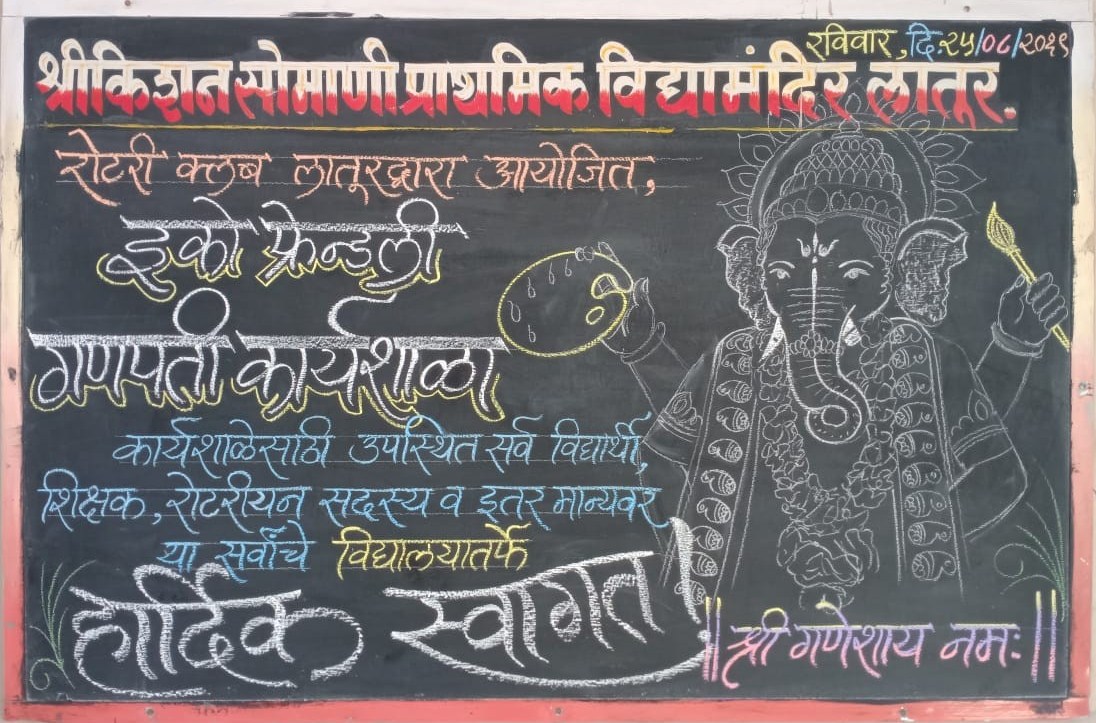 रविवार, दि.२५/०८/२०१९
श्रीकिशन सोमाणी प्राथमिक विद्यामंदिर लातूर.
रोटरी क्लब लातूरद्वारा आयोजित,
इको फ्रेन्डली
गणपती कार्यशाळा
कार्यशाळेसाठी उपस्थित सर्व विद्यार्थी,
शिक्षक, रोटरीयन सदस्य व इतर मान्यवर
या सर्वांचे विद्यालयातर्फे
हार्दिक स्वागत!
॥ श्री गणेशाय नमः ॥